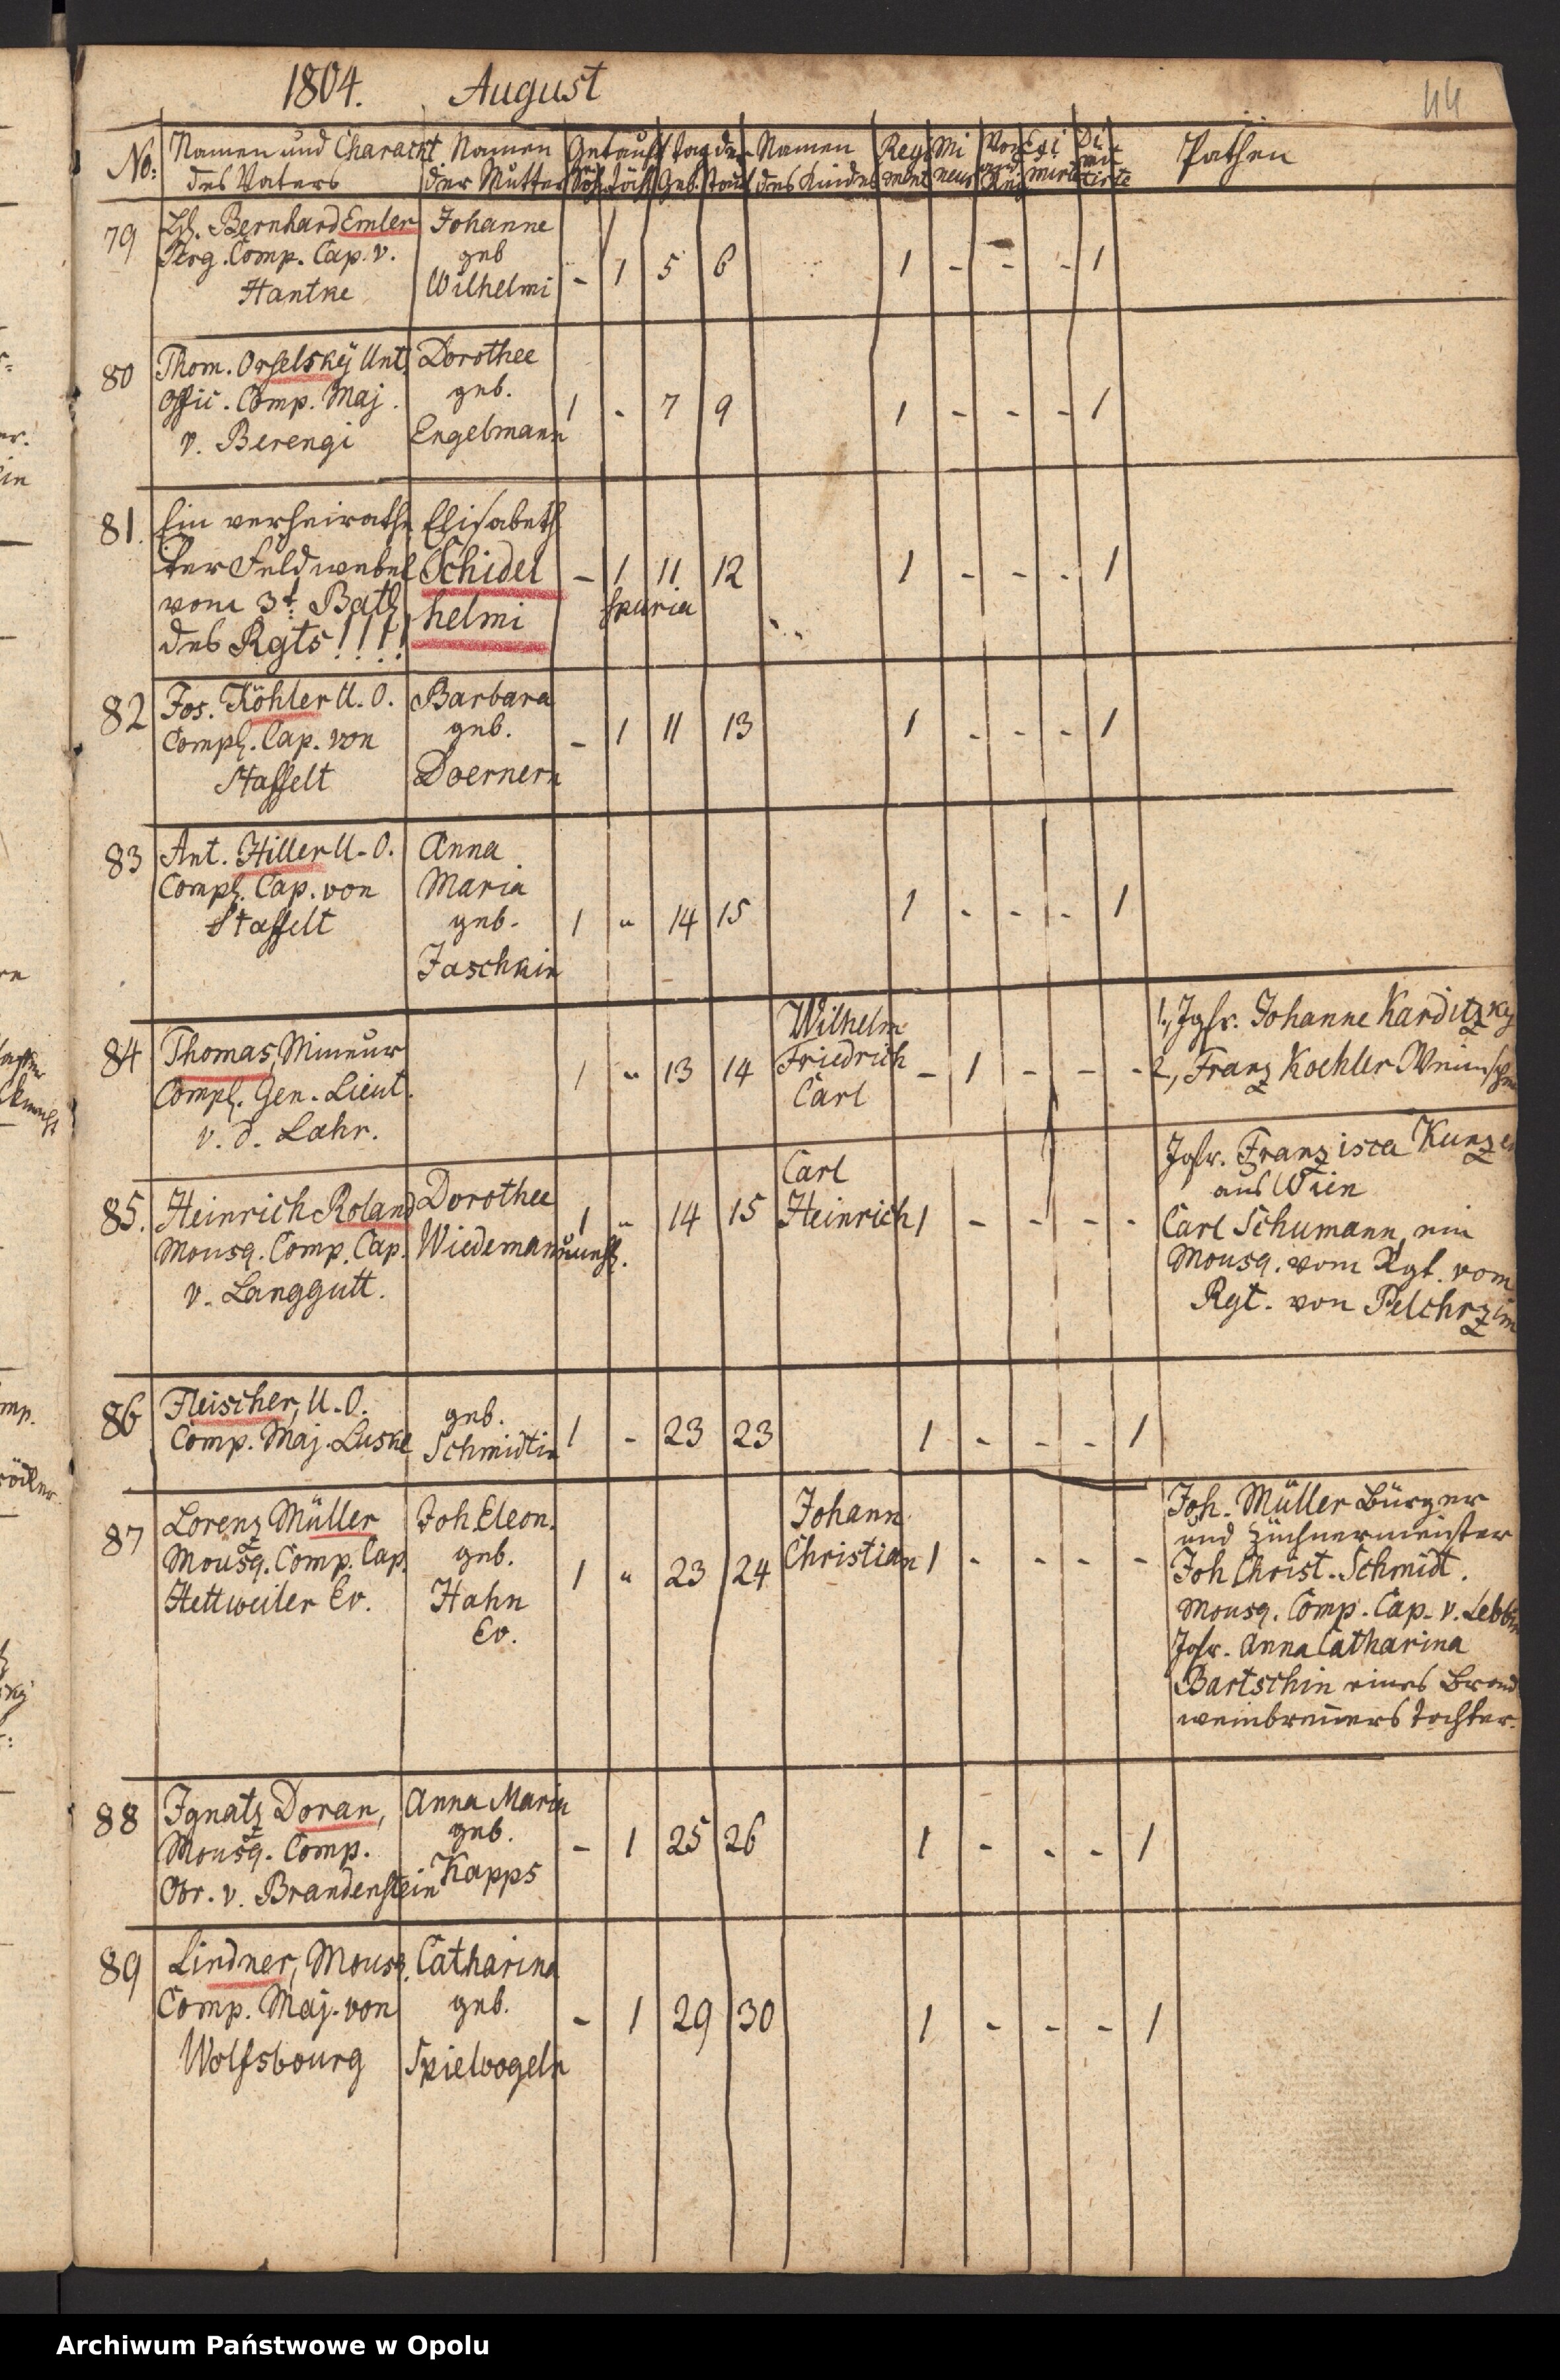 1804. August
44
No: Namen und Charackt Namen Getauft tag der Namen Regi Mi Von Exi Di Pathen
des Vaters der Mutter Söh Töch Geb. Tauf des Kindes ment neur mirte mit tirte
79 Bernhard Emler Johanne
Comp. Cap. v. geb
Hantke Wilhelmi - 1 5 6 1 - - - 1
80 Thom. Orselsky Unt. Dorothee
Offic. Comp. Maj. geb.
v. Berengi Engelmann 1 - 7 9 1 - - - 1
81. Ein verheirathe Elisabeth
ter Feldwebel Schidel - 1 11 12 1 - - - 1
vom 3t. Batl. helmi spuria
des Rgts!!!!
82 Jos. Köhler U. O. Barbara
Comp. Cap. von geb. - 1 11 13 1 - - - 1
Staffelt Doernern
83 Ant. Hiller U. O. Anna
Comp. Cap. von Maria
Staffelt geb. 1 - 14 15 1 - - - 1
Jaschkin
84 Thomas, Mineur 1 - 13 14 Wilhelm Friedrich Carl - 1 - - - 1, Jgfr. Johanne Karditzky
Comp. Gen. Lieut. 2, Franz Koehler
v. d. Lahr.
85. Heinrich Roland Dorothee 1 - 14 15 Carl Heinrich 1 - - - - Jgfr. Franzisca
Mousq. Comp. Cap. Wiedemann unehl. aus Wien
v. Langgutt. Carl Schumann, ein
Mousq. vom Rgt. vom
Rgt. von Pelchrzim
86 Fleischer, U. O. geb.
Comp. Maj. Luske Schmidtin 1 - 23 23 1 - - - 1
87 Lorenz Müller Joh. Eleon. 1 - 23 24 Johann Christian 1 - - - - Joh. Müller Bürger
Mousq. Comp. Cap. geb. und Züchnermeister
Hettweiler Ev. Hahn Joh Christ. Schmidt.
Ev. Mousq. Comp. Cap. v. Lebbin
Jgfr. Anna Catharina
Bartschin eines Brand
weinbrenners Tochter.
88 Ignatz Doran, Anna Maria
Mousq. Comp. geb. - 1 25 26 1 - - - 1
Obr. v. Brandenstein Kapps
89 Lindner, Mousq. Catharina
Comp. Maj. von geb. - 1 29 30 1 - - - 1
Wolfsbourg Spielvogeln
Archiwum Państwowe w Opolu